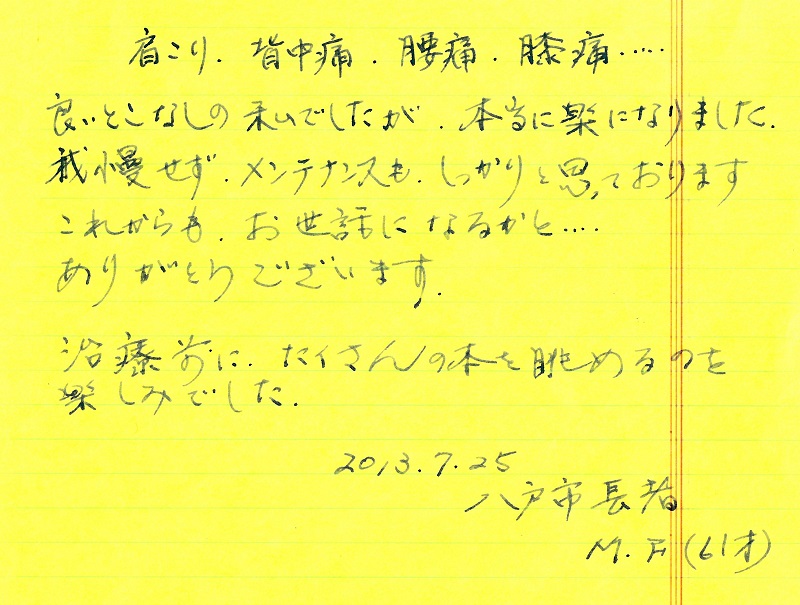 肩こり. 背中痛. 腰痛. 膝痛.....
良いとこなしの私でしたが. 本当に楽になりました.
我慢せず. メンテナンスも. しっかりと思っております
これからも. お世話になるかと....
ありがとうございます.
治療前に. たくさんの本を眺めるのを
楽しみでした.
2013.7.25
八戸市長者
M.F(61才)